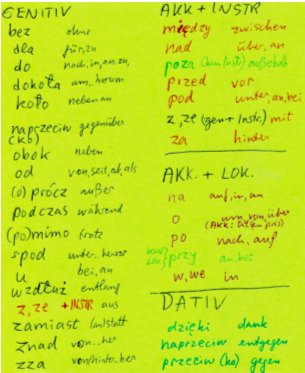 GENITIV
bez ohne
dla für, zu
do nach, in, an, zu,
dokoła um, herum
koło nebenan
naprzeciw gegenüber
(ko)
obok neben
od von, seit, ab, als
(o) prócz außer
podczas während
(po)mimo trotz
spod unter, hervor
u bei, an
wzdłuż entlang
z, ze + INSTR aus
zamiast (an)statt
znad von...her
zza von/hinter..her
AKK + INSTR
między zwischen
nad über, an
poza (kein Instr) außerhalb
przed vor
pod unter, an, bei
z, ze (gen + Instr.) mit
za hinter
AKK. + LOK.
na auf, in, an
o um, von, über
(AKK: bitten)
po nach, auf
przy an, bei
w, we in
DATIV
dzięki dank
naprzeciw entgegen
przeciw (ko) gegen